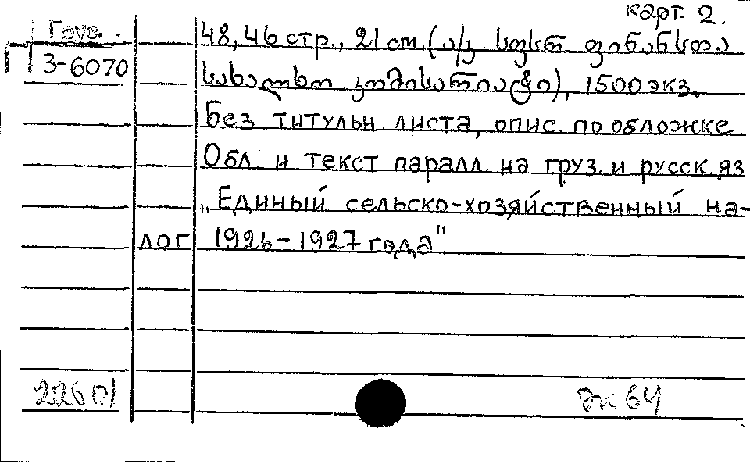 карт. 2.
Груз.
Г 3-6070
48, 46 стр., 21 см. (ა/კ სფსრ ფინანსთა
სახალხო კომისარიატი), 1500 экз.
Без титульн листа, опис. по обложке
Обл. и текст паралл. на груз. и русск. яз
„Единый сельско-хозяйственный на-
лог 1926-1927 года"
64